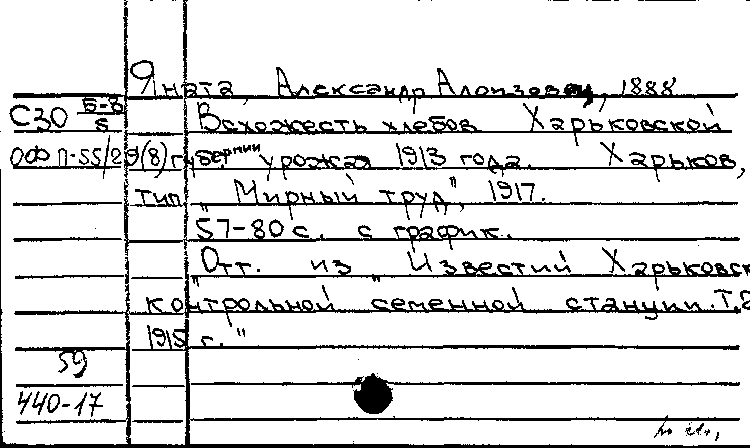 Яната, Александр Алоизович, 1888
С30 Б-8/8 Всхожесть хлебов Харьковской
ОФ П-55/29(8) губернии урожая 1913 года. Харьков,
тип. "Мирный труд", 1917.
57-80 с. с график.
"Отт. из "Известий Харьковск
контрольной семенной станции. Т.
1915 г."
59
440-17